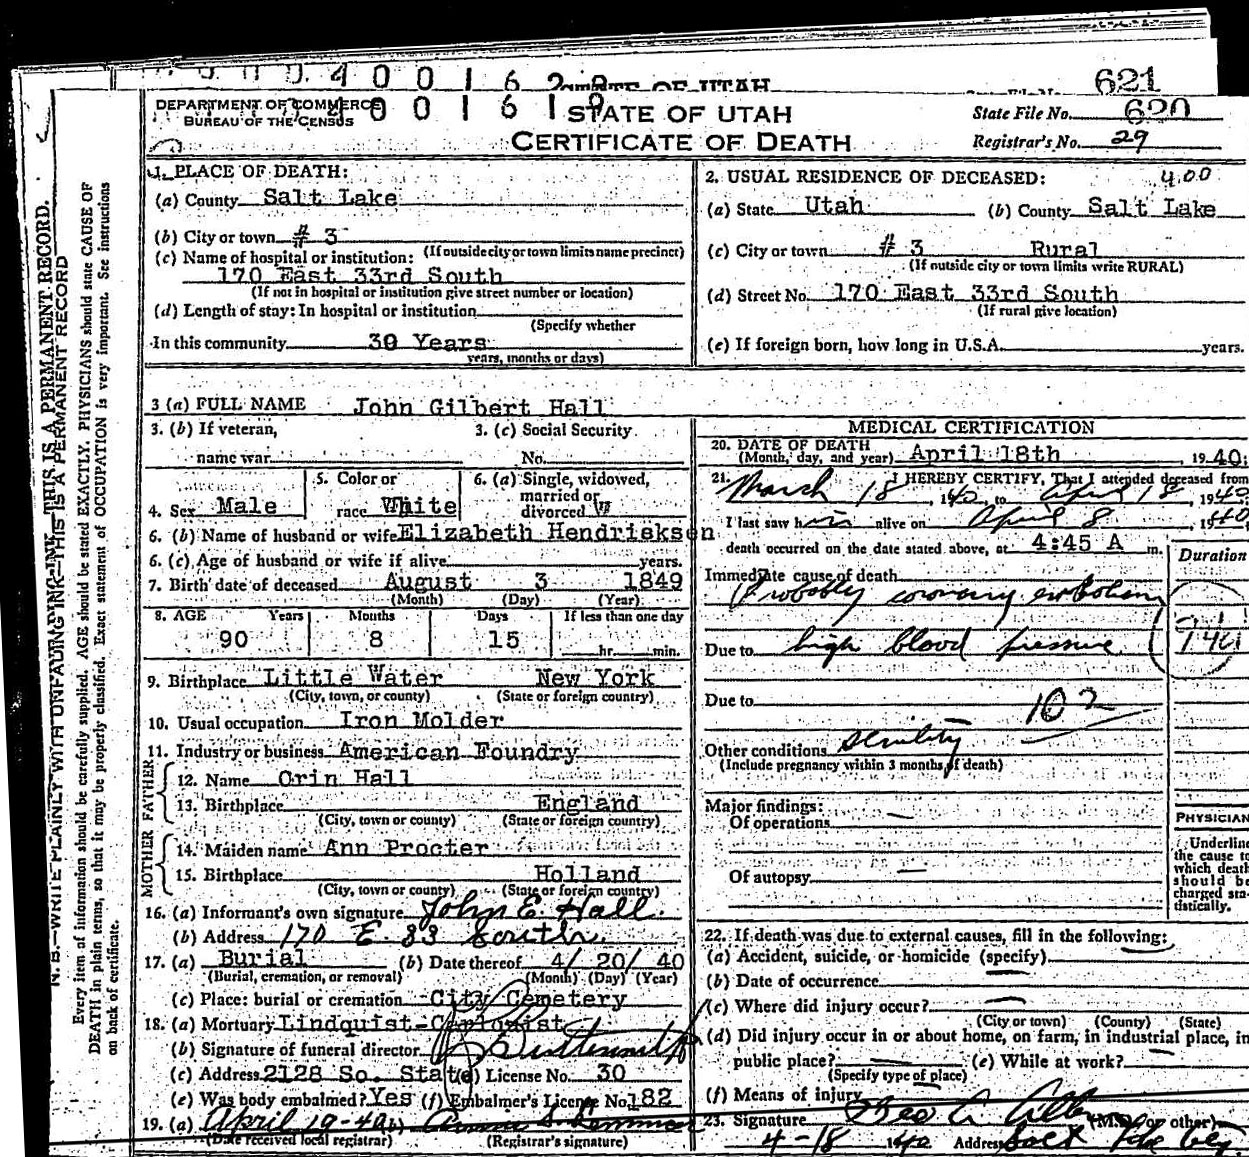 621
STATE OF UTAH
DEPARTMENT OF COMMERCE
BUREAU OF THE CENSUS
STATE OF UTAH
CERTIFICATE OF DEATH
State File No. 620
Registrar's No. 29
1. PLACE OF DEATH:
(a) County Salt Lake
(b) City or town # 3
(If outside city or town limits name precinct)
(c) Name of hospital or institution:
170 East 33rd South
(If not in hospital or institution give street number or location)
(d) Length of stay: In hospital or institution
(Specify whether
In this community 30 Years
years, months or days)
2. USUAL RESIDENCE OF DECEASED: 400
(a) State Utah (b) County Salt Lake
(c) City or town # 3 Rural
(If outside city or town limits write RURAL)
(d) Street No. 170 East 33rd South
(If rural give location)
(e) If foreign born, how long in U.S.A. years.
3 (a) FULL NAME John Gilbert Hall
3. (b) If veteran,
name war
3. (c) Social Security
No.
4. Sex Male
5. Color or
race White
6. (a) Single, widowed,
married or
divorced W
6. (b) Name of husband or wife Elizabeth Hendriksen
6. (c) Age of husband or wife if alive years.
7. Birth date of deceased August 3 1849
(Month) (Day) (Year)
8. AGE Years Months Days If less than one day
90 8 15 hr. min.
9. Birthplace Little Water New York
(City, town, or county) (State or foreign country)
10. Usual occupation Iron Molder
11. Industry or business American Foundry
FATHER
12. Name Orin Hall
13. Birthplace England
(City, town or county) (State or foreign country)
MOTHER
14. Maiden name Ann Procter
15. Birthplace Holland
(City, town or county) (State or foreign country)
16. (a) Informant's own signature John E. Hall.
(b) Address 170 E. 33 South.
17. (a) Burial (b) Date thereof 4/ 20/ 40
(Burial, cremation, or removal) (Month) (Day) (Year)
(c) Place: burial or cremation City Cemetery
18. (a) Mortuary Lindquist-
(b) Signature of funeral director
(c) Address 2128 So. State (d) License No. 30
(e) Was body embalmed? Yes (f) Embalmer's License No. 182
19. (a) April 19-40 (b)
(Date received local registrar) (Registrar's signature)
MEDICAL CERTIFICATION
20. DATE OF DEATH
(Month, day, and year) April 18th 1940
21. I HEREBY CERTIFY, That I attended deceased from
March 18 1940, to April 18, 1940
I last saw him alive on April 8, 1940
death occurred on the date stated above, at 4:45 A m.
Duration
Immediate cause of death
Probably coronary embolism
Due to high blood pressure
940
Due to
102
Other conditions senility
(Include pregnancy within 3 months of death)
Major findings:
Of operations
Of autopsy
PHYSICIAN
Underline
the cause to
which death
should be
charged sta-
tistically.
22. If death was due to external causes, fill in the following:
(a) Accident, suicide, or homicide (specify)
(b) Date of occurrence
(c) Where did injury occur?
(City or town) (County) (State)
(d) Did injury occur in or about home, on farm, in industrial place, in
public place? (e) While at work?
(Specify type of place)
(f) Means of injury
23. Signature Geo A. Allen (M.D. or other)
4-18 1940 Address Salt Lake City.
N. B.—WRITE PLAINLY WITH UNFADING INK—THIS IS A PERMANENT RECORD.
Every item of information should be carefully supplied. AGE should be stated EXACTLY. PHYSICIANS should state CAUSE OF
DEATH in plain terms, so that it may be properly classified. Exact statement of OCCUPATION is very important. See instructions
on back of certificate.